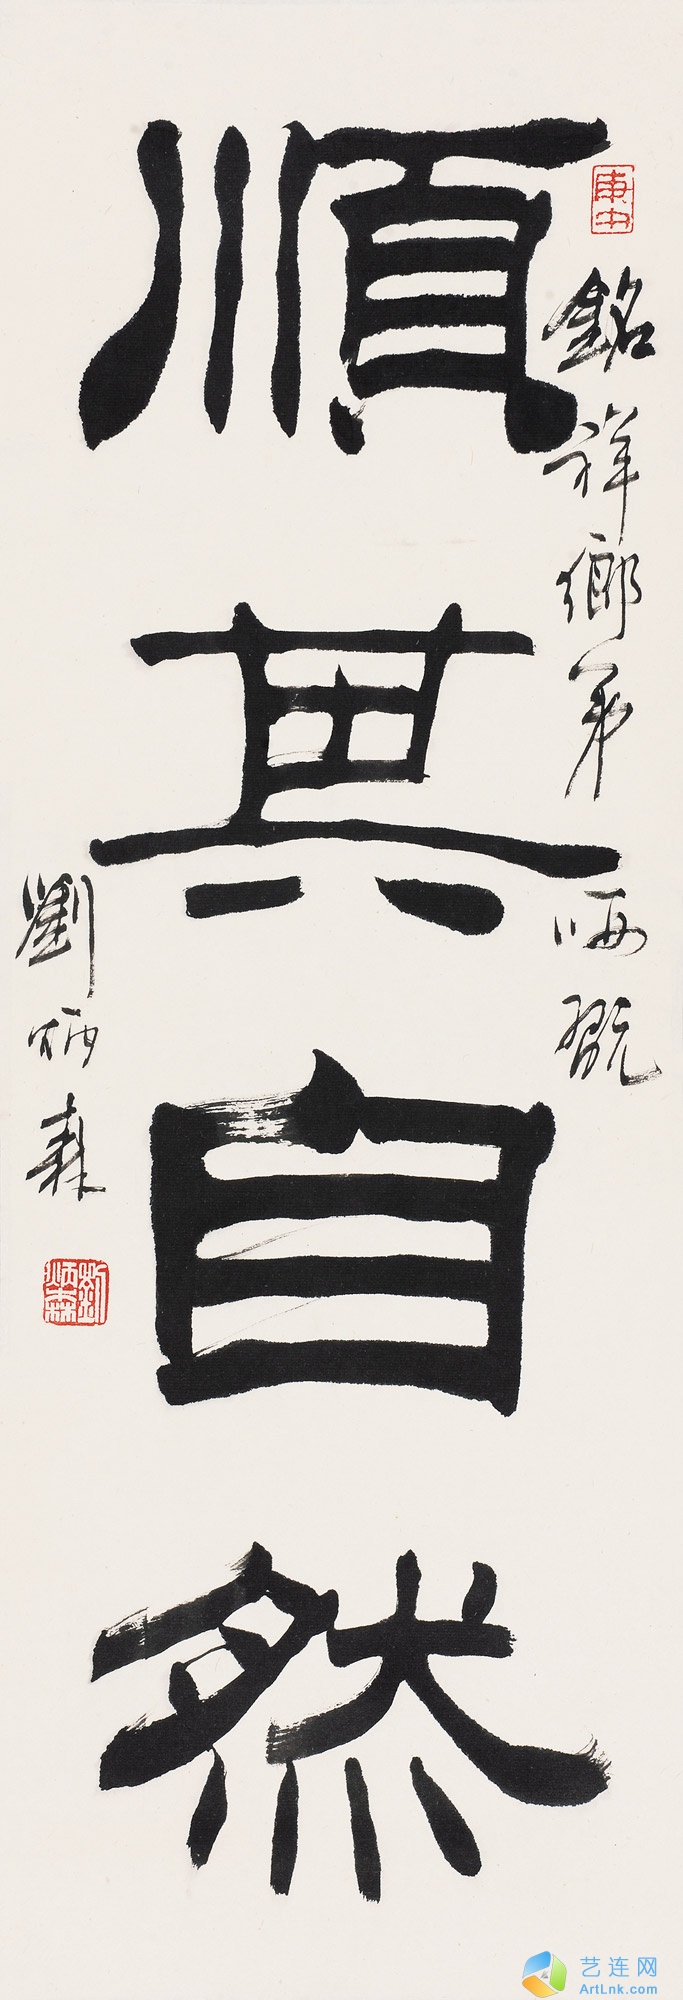 庚申
銘祥鄉弟
哂翫
順其自然
劉炳森
劉炳森
艺连网
ArtLnk.com